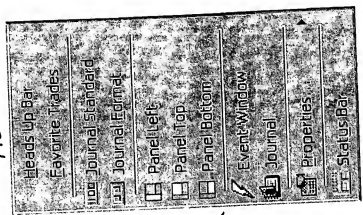 Heads Up Bar
Favorite Trades
Journal Standard
Journal Format
Panel Left
Panel Top
Panel Bottom
Event Window
Journal
Properties
Status Bar